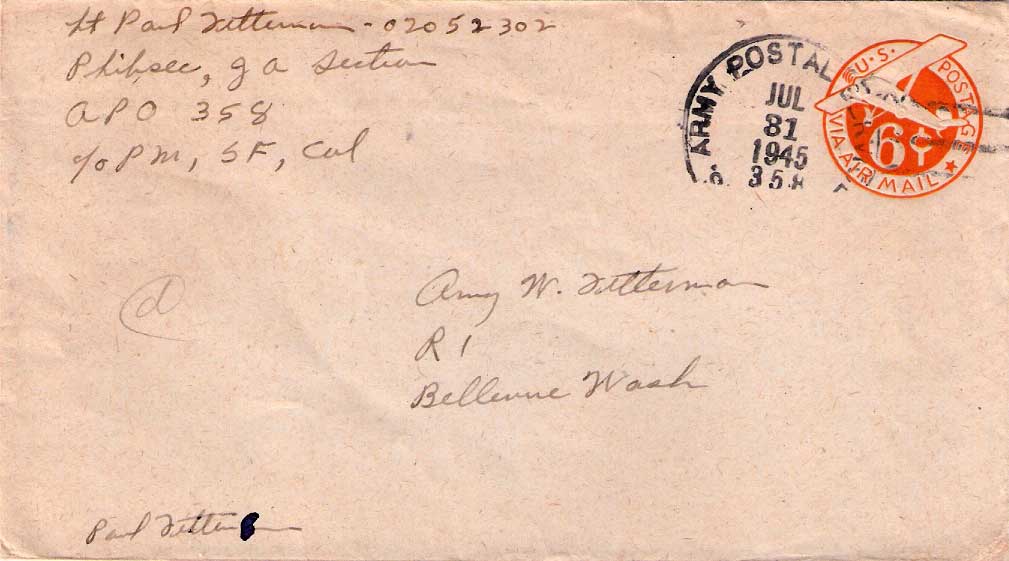 Lt Paul Titterman - 02052302
Philsec, J A Section
APO 358
c/o PM, SF, Cal
ARMY POSTAL
JUL
31
1945
358
U.S. POSTAGE
6¢
VIA AIR MAIL
d
Amy W. Titterman
R 1
Bellevue Wash
Paul Titterman